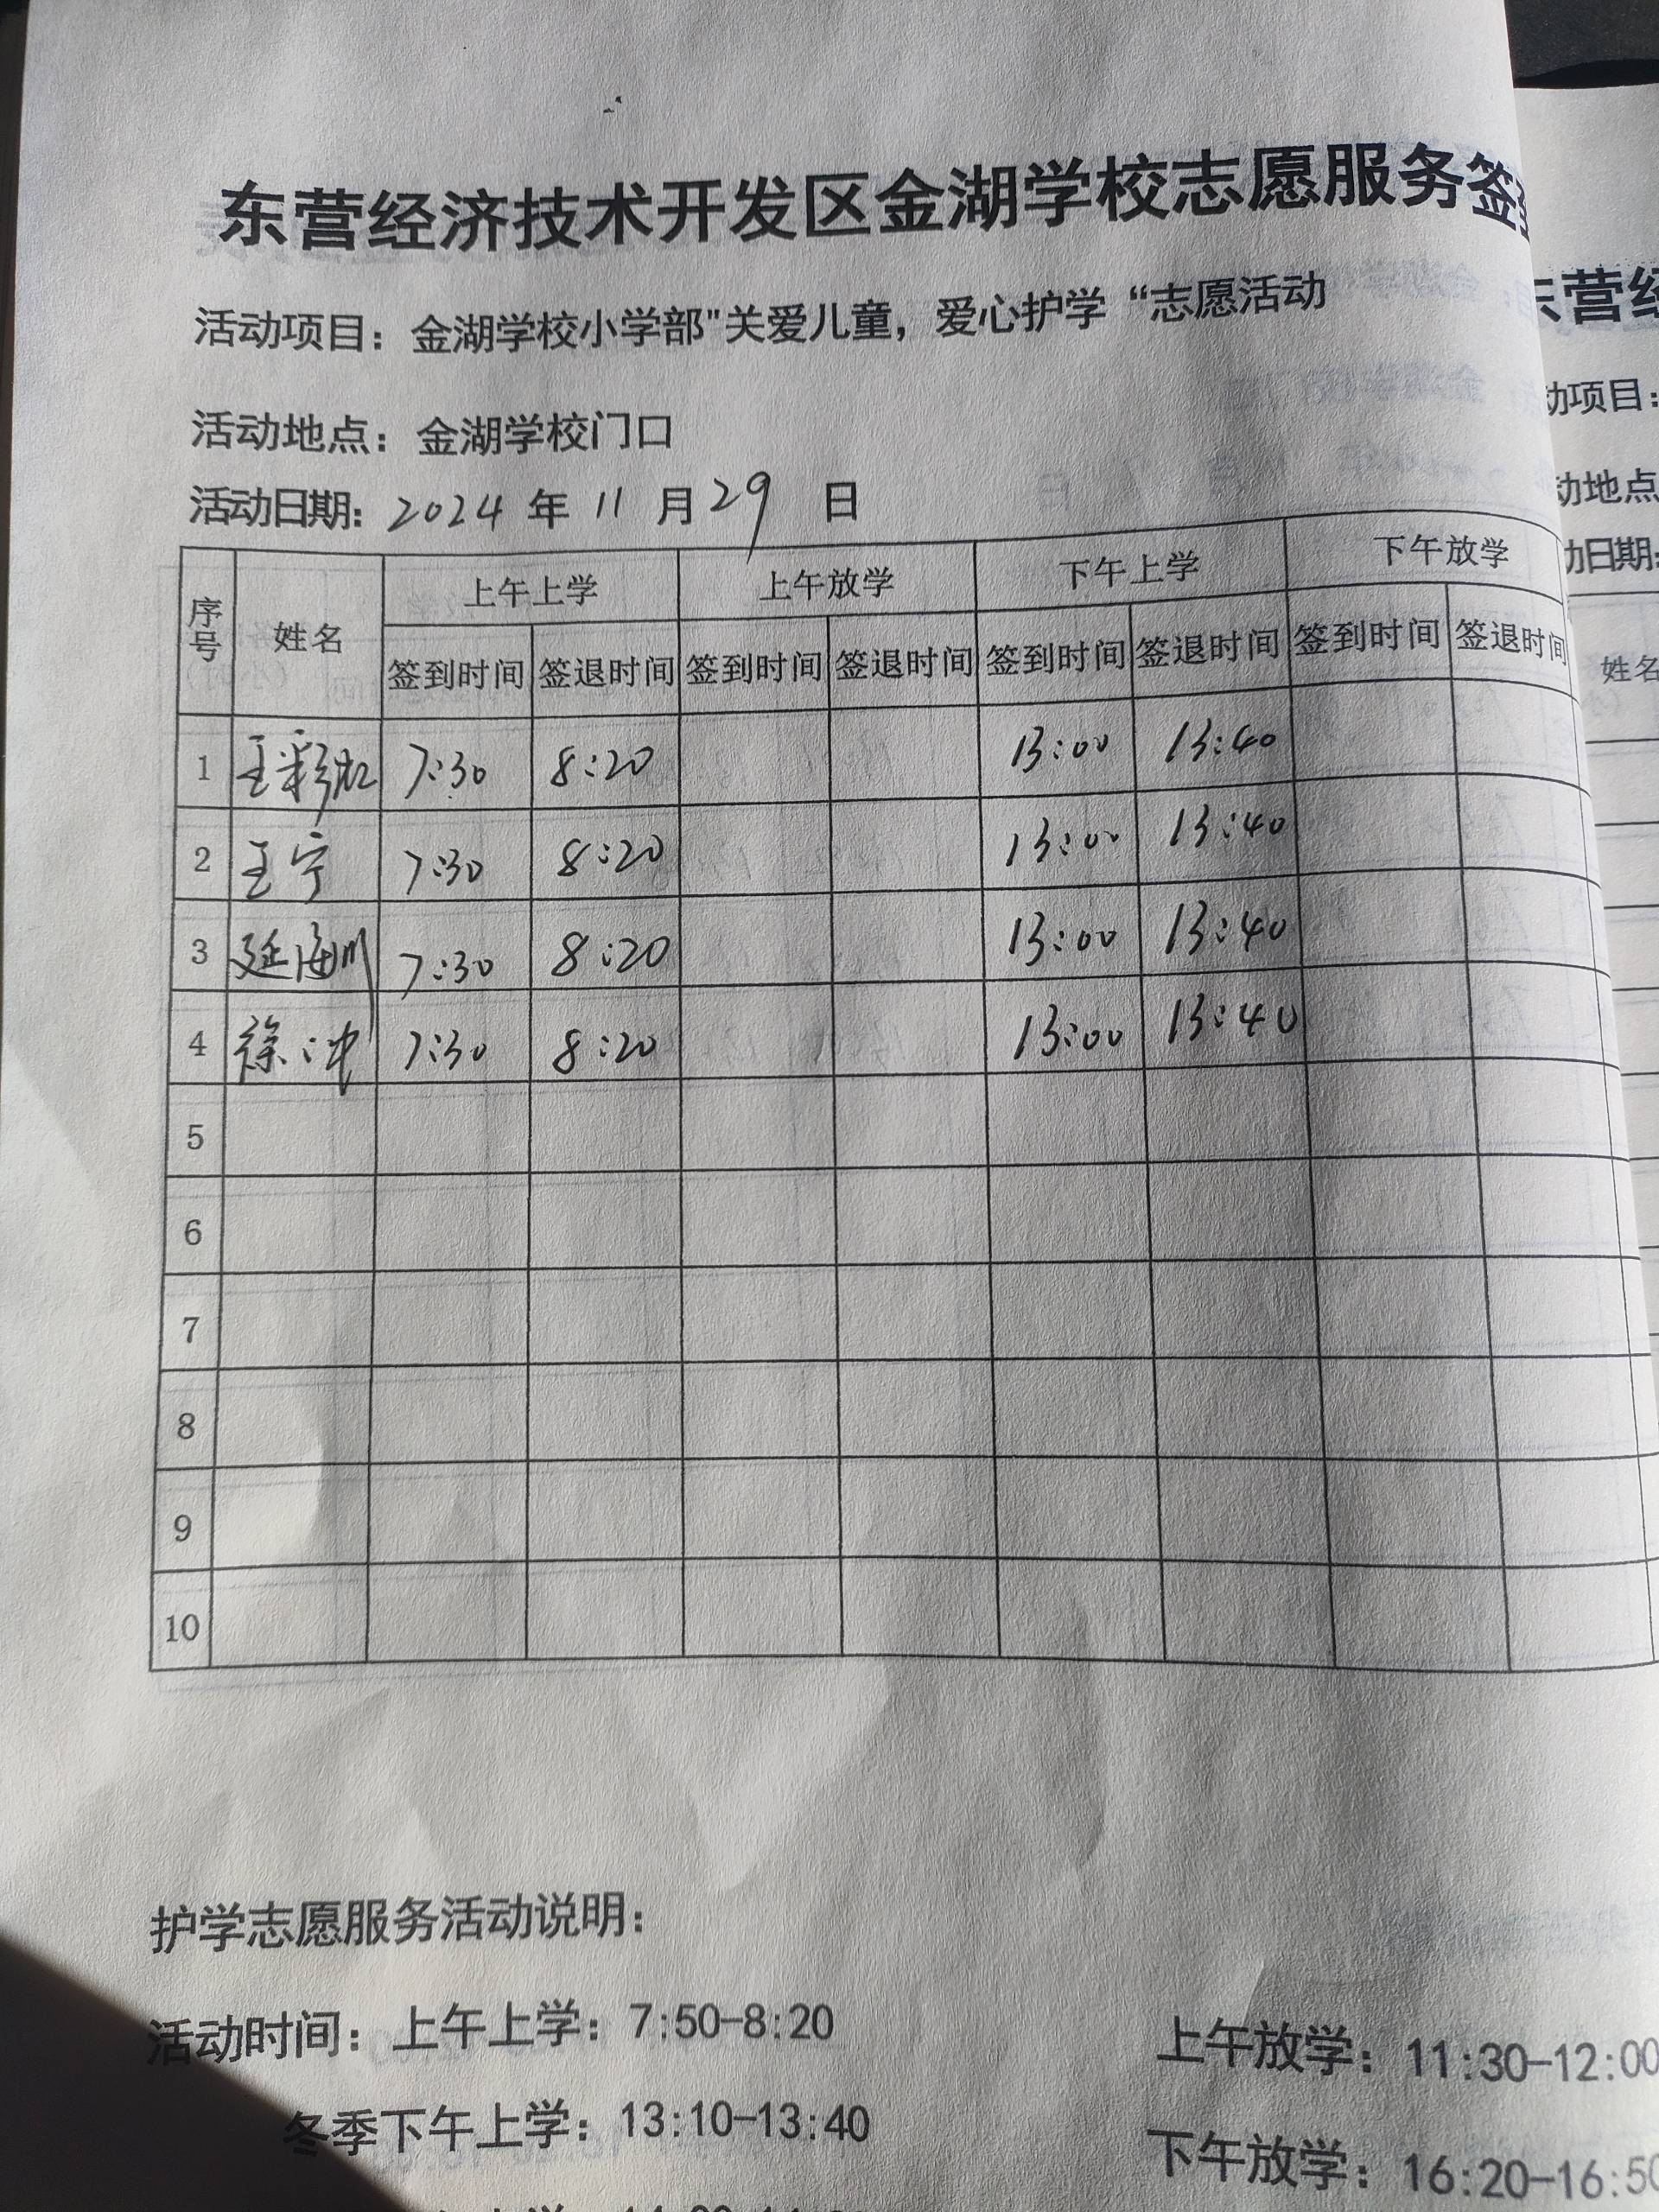 东营经济技术开发区金湖学校志愿服务签
活动项目：金湖学校小学部"关爱儿童，爱心护学“志愿活动
活动地点：金湖学校门口
活动日期：2024 年 11 月 29 日
序号 姓名 上午上学 上午放学 下午上学 下午放学
签到时间 签退时间 签到时间 签退时间 签到时间 签退时间 签到时间 签退时间
1 王彩虹 7:30 8:20 13:00 13:40
2 王宁 7:30 8:20 13:00 13:40
3 延海川 7:30 8:20 13:00 13:40
4 徐冲 7:30 8:20 13:00 13:40
5
6
7
8
9
10
护学志愿服务活动说明：
活动时间：上午上学：7:50-8:20 上午放学：11:30-12:00
冬季下午上学：13:10-13:40 下午放学：16:20-16:50
营经
动项目：
动地点
动日期：
姓名